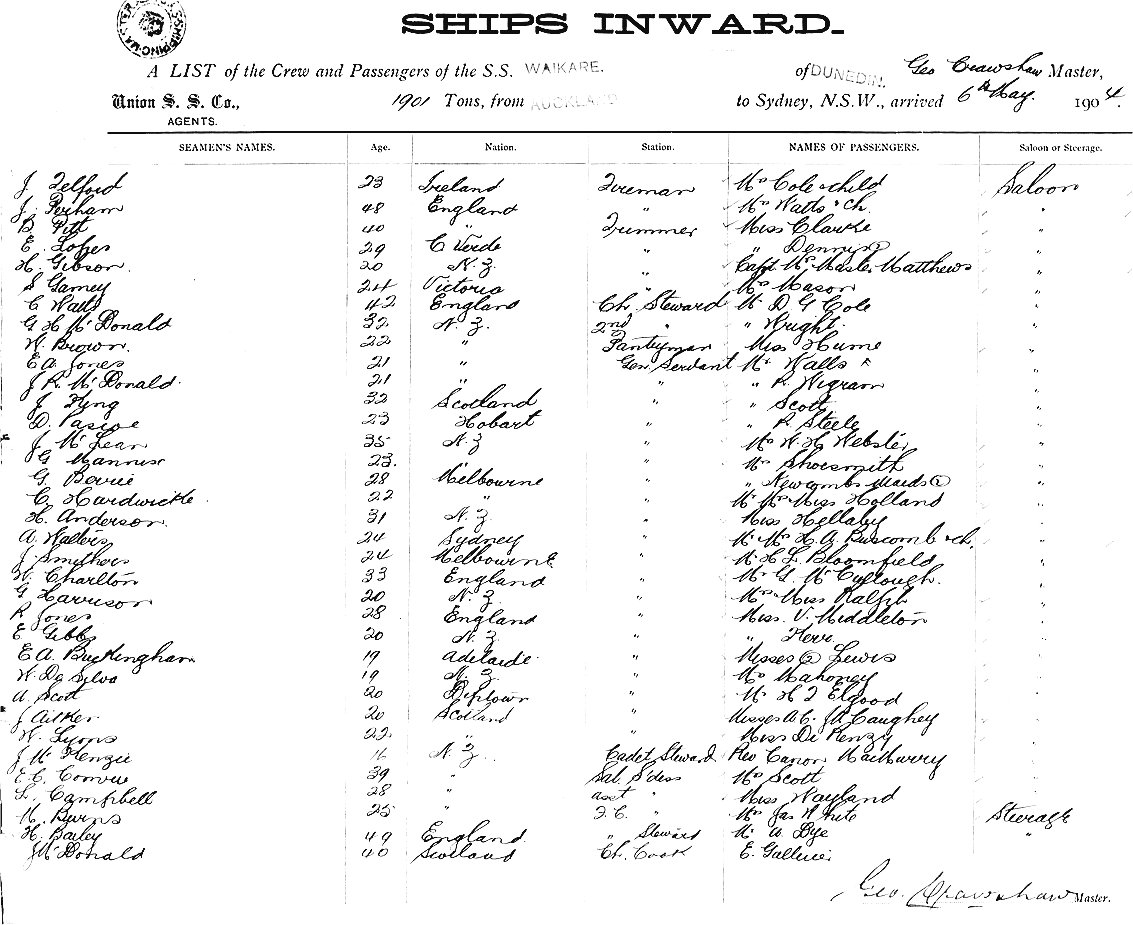 SHIPS INWARD.
A LIST of the Crew and Passengers of the S.S. WAIKARE. of DUNEDIN. Geo Crawshaw Master,
Union S. S. Co., 1901 Tons, from AUCKLAND to Sydney, N.S.W., arrived 6th May. 1904.
AGENTS.
SEAMEN'S NAMES. Age. Nation. Station. NAMES OF PASSENGERS. Saloon or Steerage.
J Telford 23 Ireland Fireman Mrs Cole & child Saloon
J. Perham 48 England " Mrs Watts & ch. "
B. Pitt 40 " Trimmer Miss Clarke "
E. Lopes 29 C Verde " " Dennys "
H. Gibson. 20 N. Z. " Capt Mrs Master Matthews "
S Gamey 24 Victoria " Mrs Mason "
C Watts 42 England Ch. Steward Mr D G Cole "
G H McDonald 32 N. Z. 2nd " " Wright. "
W. Brown. 22 " Pantryman Miss Hume "
E A Jones 21 " Gen Servant Mr Walls "
J R. McDonald. 21 " " " R Wigram "
J King 32 Scotland " " Scott "
D. Pascoe 23 Hobart " " R Steele "
J McLean 35 N. Z " Mrs W. H Webster "
G Mannix 23. " " Mr Shoesmith "
G. 28 Melbourne " " Newcombs Maids 2 "
C Hardwicke 22 " " Mr Mrs Miss Holland "
H. Anderson. 31 N. Z. " Miss Hellaby "
A. Walters 24 Sydney " Mr Mrs H. A Buscomb & ch. "
J Smithers 24 Melbourne " Mr H L Bloomfield "
W. Charlton 33 England " Mr G. McCullough. "
G Harrison 20 N. Z. " Mrs Miss Ralph "
R Jones 28 England " Miss V. Middleton "
E Gibbs 20 N. Z. " " "
E A. Buckingham 19 Adelaide " Misses 2 Lewis "
W. Da Silva 19 N. Z. " Mrs Mahoney "
A Scott 20 " Mr H J Elgood "
J Aitken 20 Scotland " Misses A C. J A Caughey "
W. Lyons 22. " " Miss De Renzy "
J McKenzie 16 N. Z. Cadet Steward Rev Canon "
E. C. 39 " Sal. S'dess Mrs Scott "
L. Campbell 28 " asst " Miss Wayland "
M. Burns 25 " F. C. " Mrs Jas White Steerage
H. Bailey 49 England " Steward Mr A Dye "
J McDonald 40 Scotland Ch. Cook E.
Geo. Crawshaw Master.